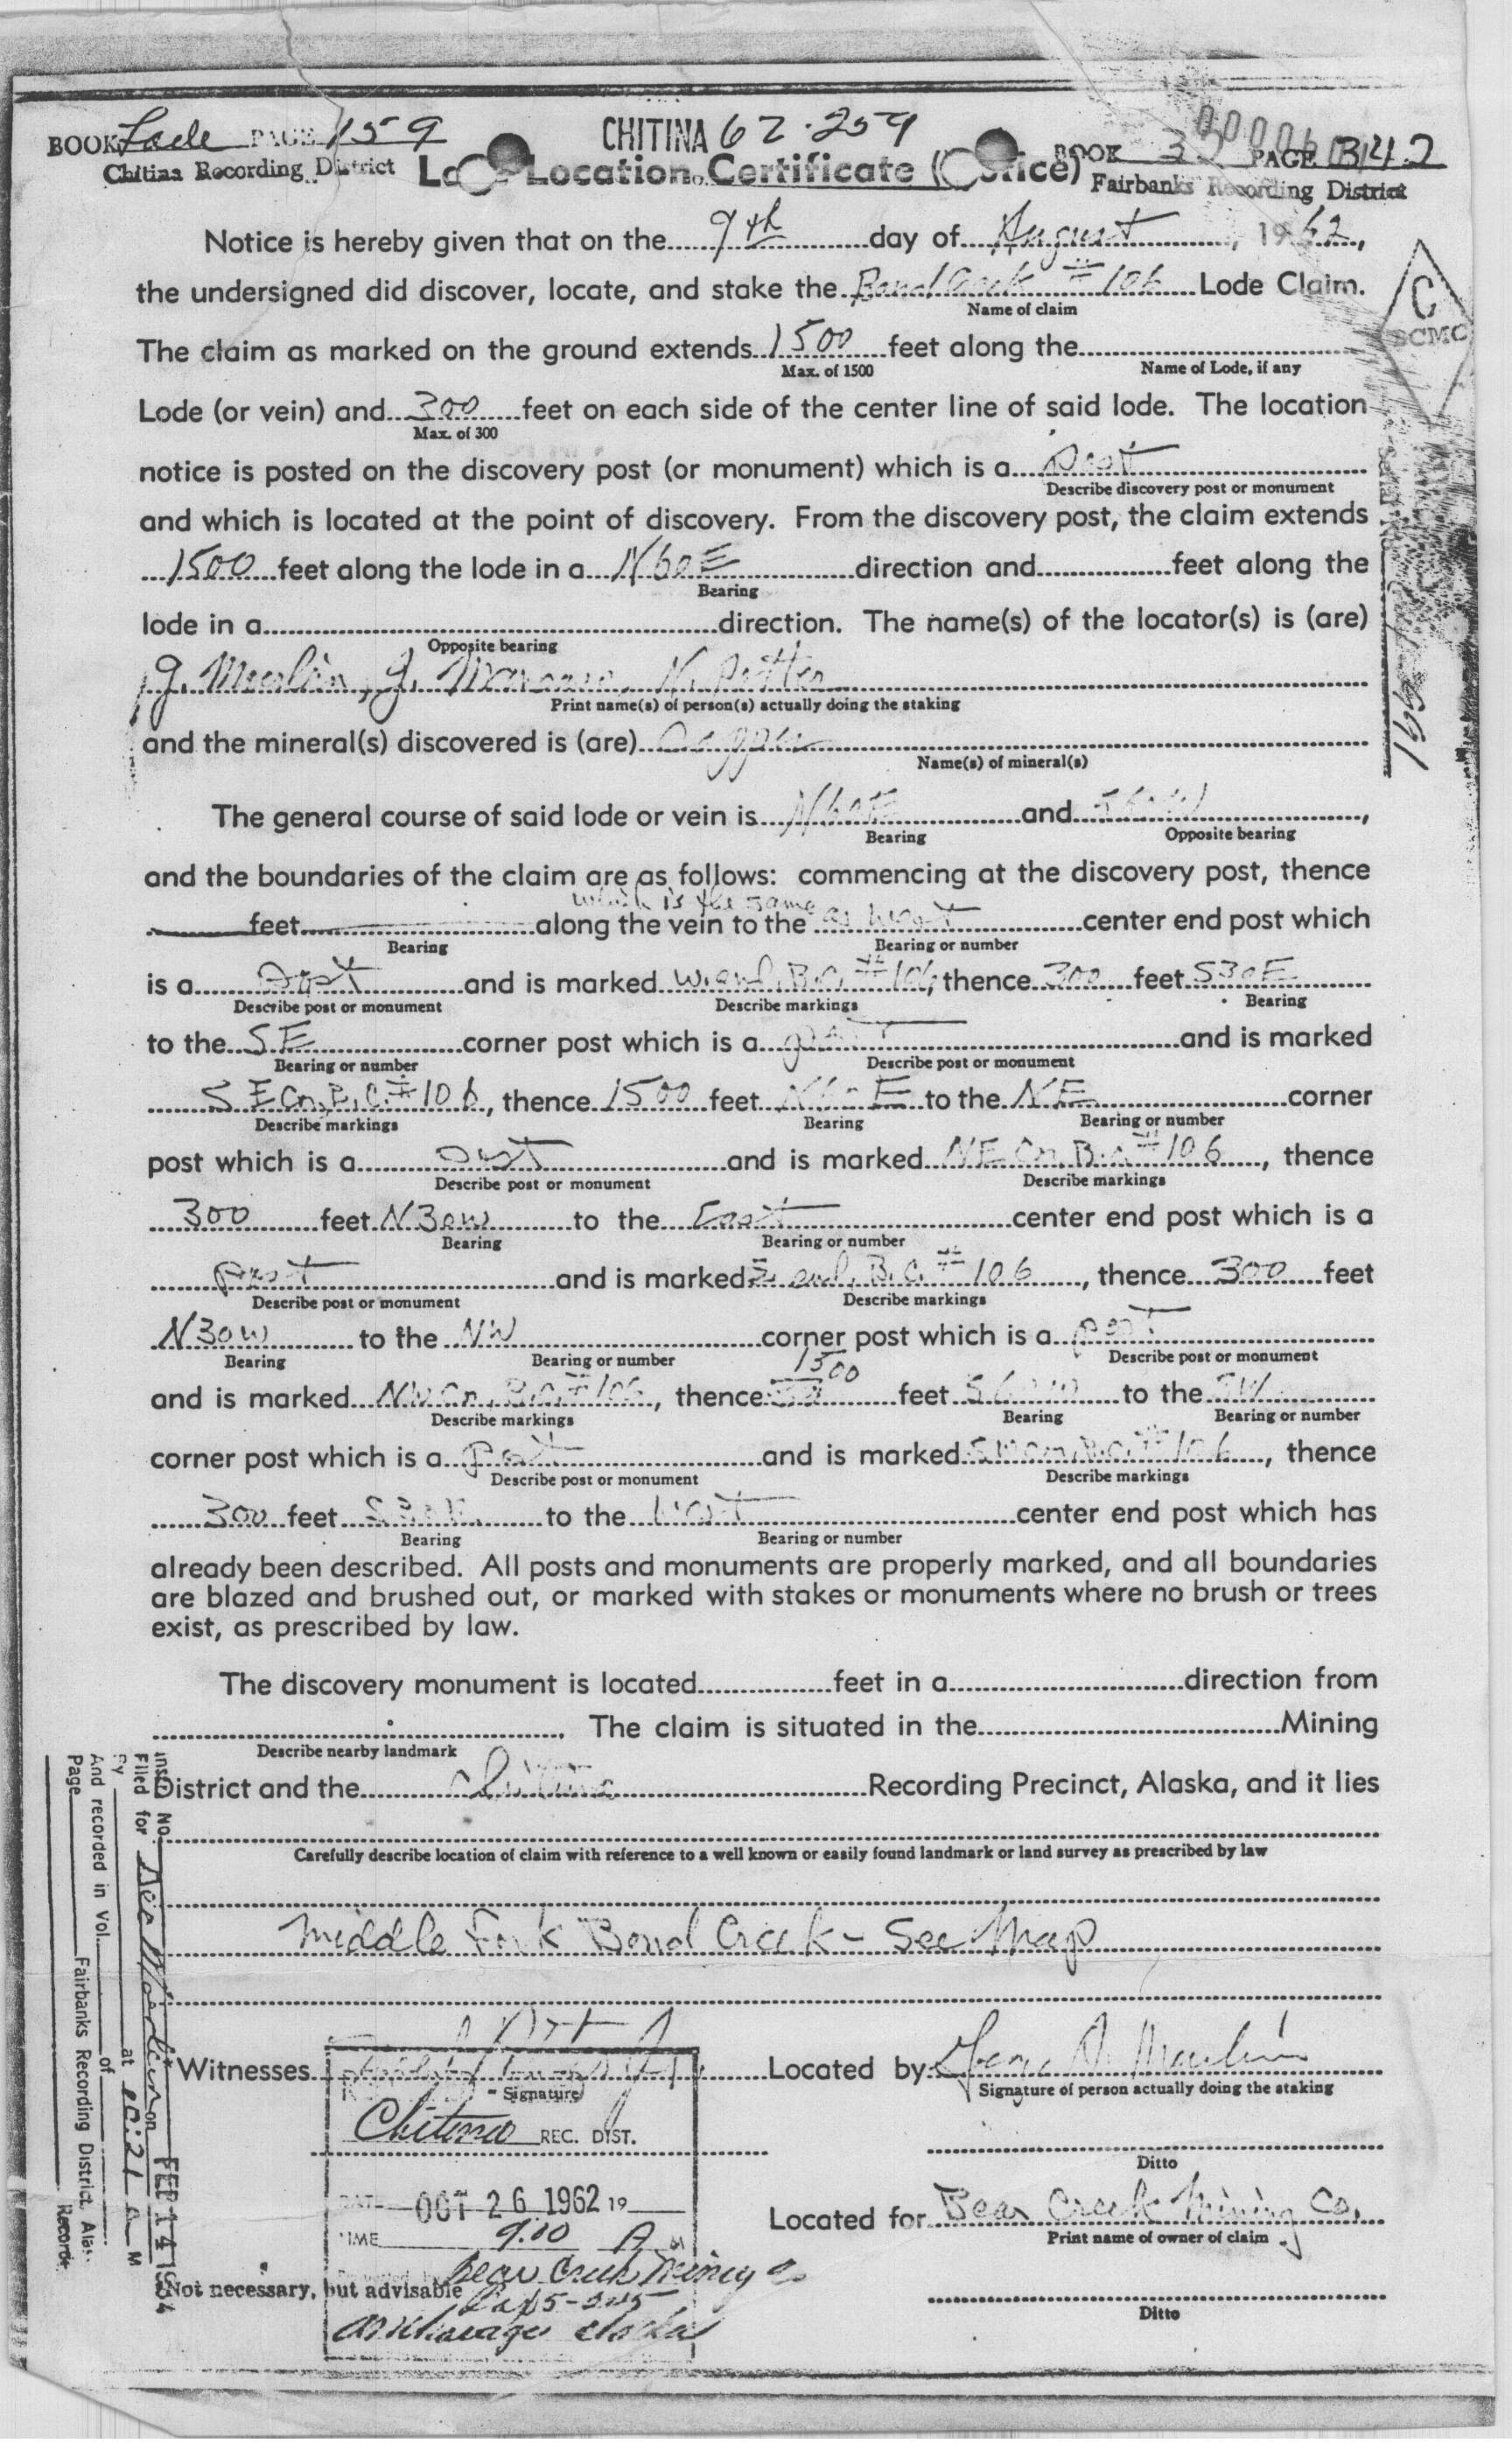 BOOK Lode PAGE 159
Chitina Recording District
CHITINA 62-259
BOOK PAGE
Fairbanks Recording District
Location Certificate
Notice is hereby given that on the 9th day of August, 1962,
the undersigned did discover, locate, and stake the Bond Creek #106 Lode Claim.
Name of claim
C
BCMC
The claim as marked on the ground extends 1500 feet along the
Max. of 1500 Name of Lode, if any
Lode (or vein) and 300 feet on each side of the center line of said lode. The location
Max. of 300
notice is posted on the discovery post (or monument) which is a Post
Describe discovery post or monument
and which is located at the point of discovery. From the discovery post, the claim extends
1500 feet along the lode in a N60E direction and feet along the
Bearing
lode in a direction. The name(s) of the locator(s) is (are)
Opposite bearing
G. Moerlein, J. N. Potter
Print name(s) of person(s) actually doing the staking
and the mineral(s) discovered is (are) Copper
Name(s) of mineral(s)
The general course of said lode or vein is N60E and S60W,
Bearing Opposite bearing
and the boundaries of the claim are as follows: commencing at the discovery post, thence
which is the same
feet along the vein to the as west center end post which
Bearing Bearing or number
is a Post and is marked W. end, B.C. #106, thence 300 feet S30E
Describe post or monument Describe markings Bearing
to the SE corner post which is a post and is marked
Bearing or number Describe post or monument
SE Cn. B.C. #106, thence 1500 feet N60E to the NE corner
Describe markings Bearing Bearing or number
post which is a post and is marked NE Cn. B.C. #106, thence
Describe post or monument Describe markings
300 feet N30W to the East center end post which is a
Bearing Bearing or number
post and is marked E. end, B.C. #106, thence 300 feet
Describe post or monument Describe markings
N30W to the NW corner post which is a post
Bearing Bearing or number Describe post or monument
1500
and is marked NW Cn. B.C. #106, thence feet S60W to the SW
Describe markings Bearing Bearing or number
corner post which is a post and is marked SW Cn. B.C. #106, thence
Describe post or monument Describe markings
300 feet S30E to the West center end post which has
Bearing Bearing or number
already been described. All posts and monuments are properly marked, and all boundaries
are blazed and brushed out, or marked with stakes or monuments where no brush or trees
exist, as prescribed by law.
The discovery monument is located feet in a direction from
. The claim is situated in the Mining
Describe nearby landmark
District and the Chitina Recording Precinct, Alaska, and it lies
Carefully describe location of claim with reference to a well known or easily found landmark or land survey as prescribed by law
Middle Fork Bond Creek - See Map
Witnesses Located by
Signature Signature of person actually doing the staking
Chitina REC. DIST.
Ditto
DATE OCT 26 1962 19
Located for Bear Creek Mining Co.
TIME 9:00 A M
Print name of owner of claim
Bear Creek Mining Co
Not necessary, but advisable
Anchorage Alaska
Ditto
Inst. No.
Filed for on FEB 14
By at 10:21 a M
And recorded in Vol. of
Page Fairbanks Recording District, Alas. Records